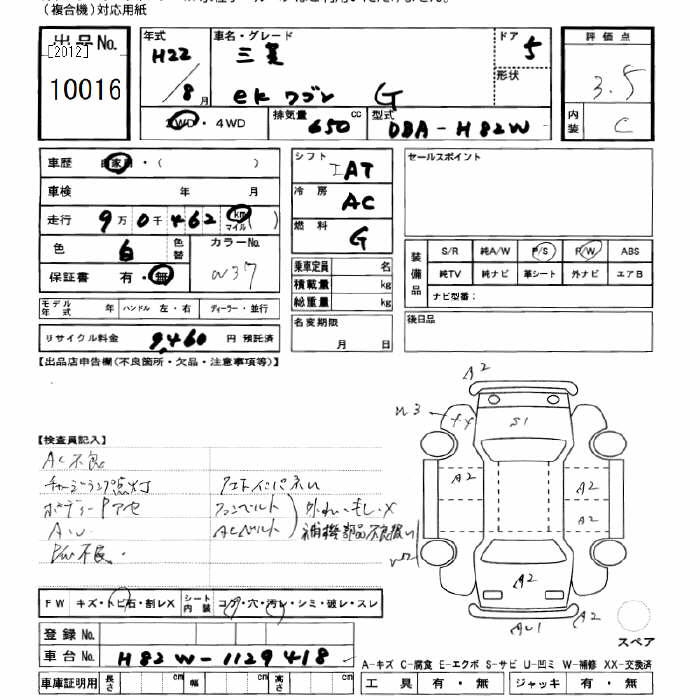 (複合機)対応用紙
出品No.
[2012]
10016
年式
H22
/8月
車名・グレード
三菱
ekワゴン G
ドア
5
形状
2WD・4WD
排気量
650 cc
型式
DBA-H82W
評価点
3.5
内装
C
車歴 自家用・( )
車検 年 月
走行 9万0千462 km マイル( )
色 白 色替
カラーNo.
W37
保証書 有・無
モデル年式 年 ハンドル 左・右 ディーラー・並行
リサイクル料金 9,460 円 預託済
シフト IAT
冷房 AC
燃料 G
乗車定員 名
積載量 kg
総重量 kg
名変期限
月 日
セールスポイント
装備品
S/R 純A/W P/S P/W ABS
純TV 純ナビ 革シート 外ナビ エアB
ナビ型番:
後日品
【出品店申告欄(不良箇所・欠品・注意事項等)】
【検査員記入】
AC不良
チャージランプ点灯
ボディーPアセ
P/W不良.
ファンベルト
ACベルト
補機部品不良扱い
A2
S1
A2
A2
A2
A2
A2
スペア
FW キズ・トビ石・割レX
シート内装 コゲ・穴・汚レ・シミ・破レ・スレ
登録No.
車台No. H82W-1129418
車庫証明用 長さ cm 幅 cm 高さ cm
A-キズ C-腐食 E-エクボ S-サビ U-凹ミ W-補修 XX-交換済
工具 有・無 ジャッキ 有・無